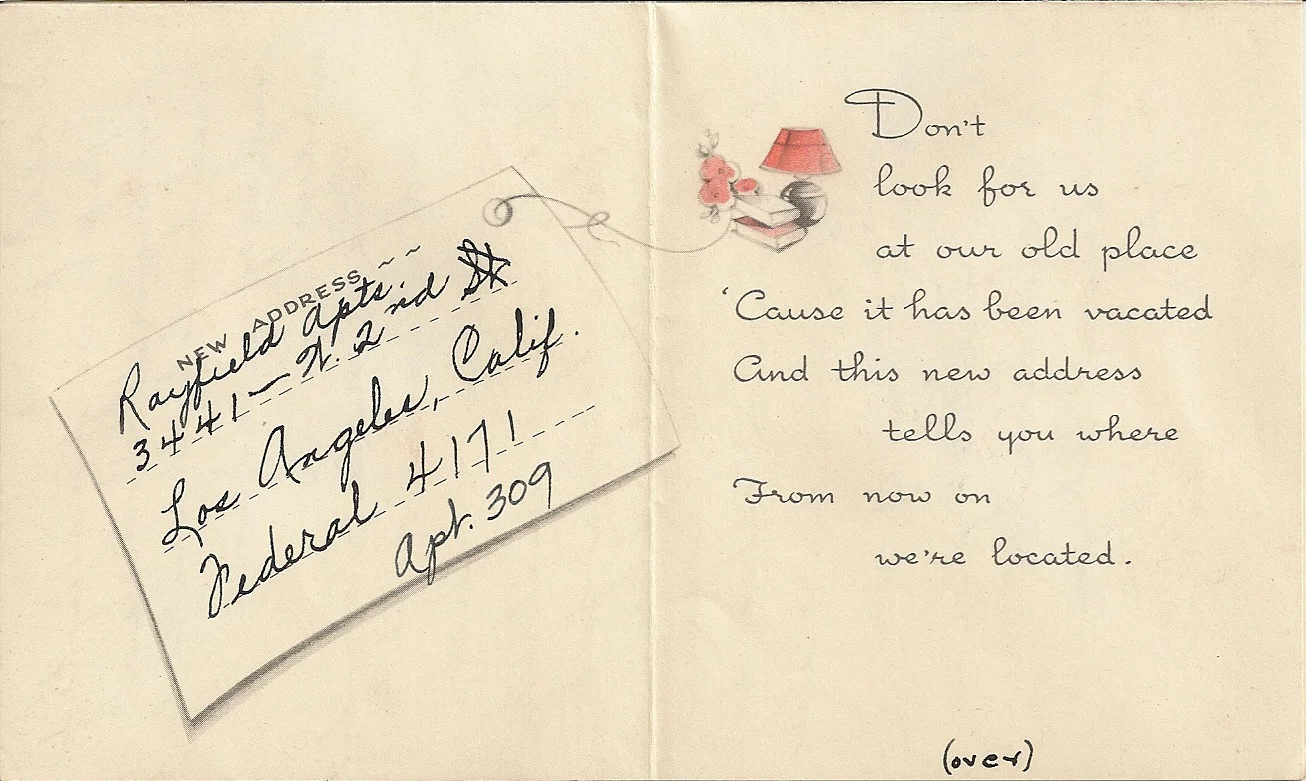 NEW ADDRESS ~ ~
Rayfield Apts.
3441 — W. 2nd St
Los Angeles, Calif.
Federal 4171
Apt. 309
Don't
look for us
at our old place
'Cause it has been vacated
And this new address
tells you where
From now on
we're located.
(over)